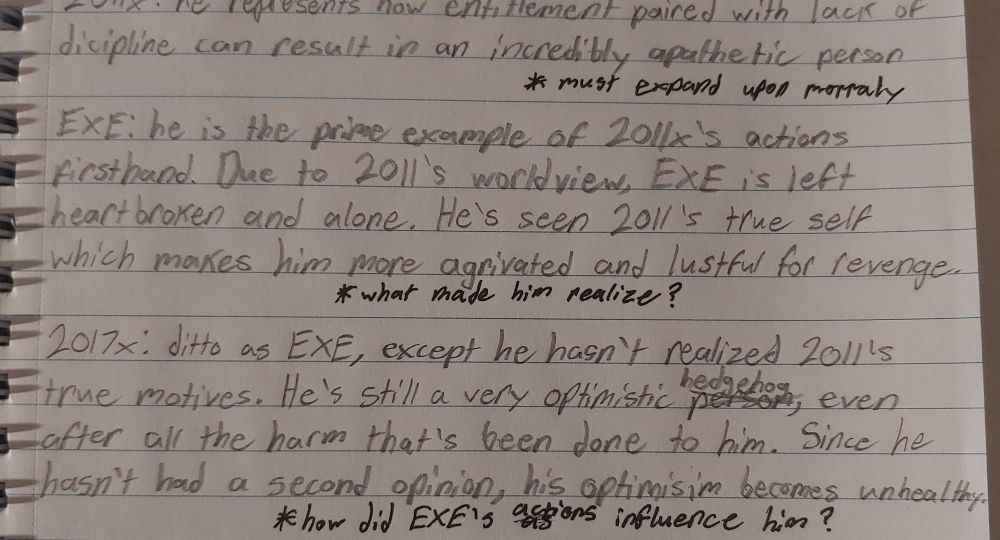 2011x: he represents how entitlement paired with lack of
dicipline can result in an incredibly apathetic person
* must expand upon morraly
EXE: he is the prime example of 2011x's actions
firsthand. Due to 2011's worldview, EXE is left
heartbroken and alone. He's seen 2011's true self
which makes him more agrivated and lustful for revenge.
* what made him realize?
2017x: ditto as EXE, except he hasn't realized 2011's
true motives. He's still a very optimistic hedgehog person, even
after all the harm that's been done to him. Since he
hasn't had a second opinion, his optimisim becomes unhealthy.
* how did EXE's actions influence him?